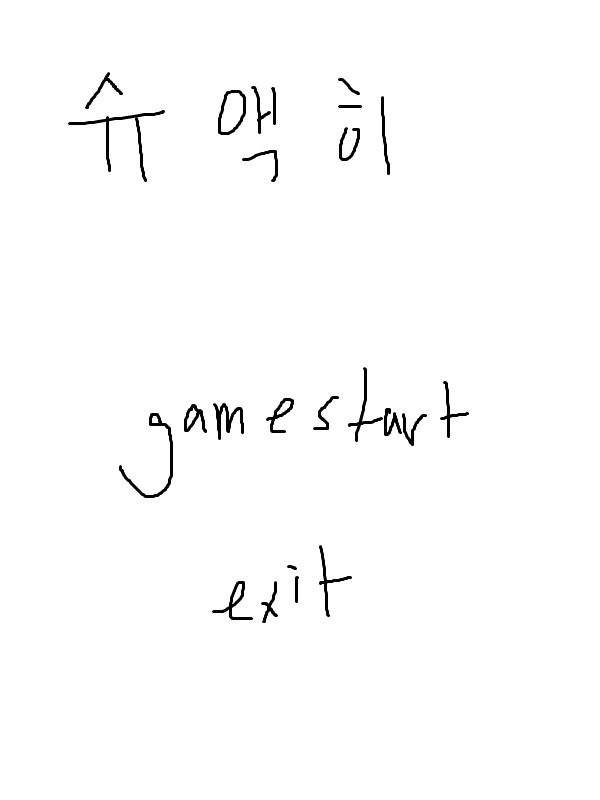 슈 액 히
game start
exit